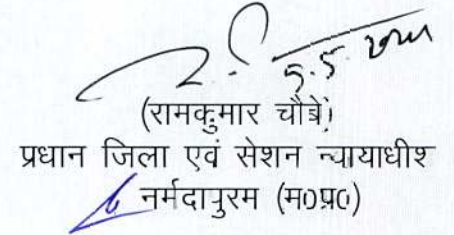 5.5
(रामकुमार चौबे)
प्रधान जिला एवं सेशन न्यायाधीश
नर्मदापुरम (म0प्र0)